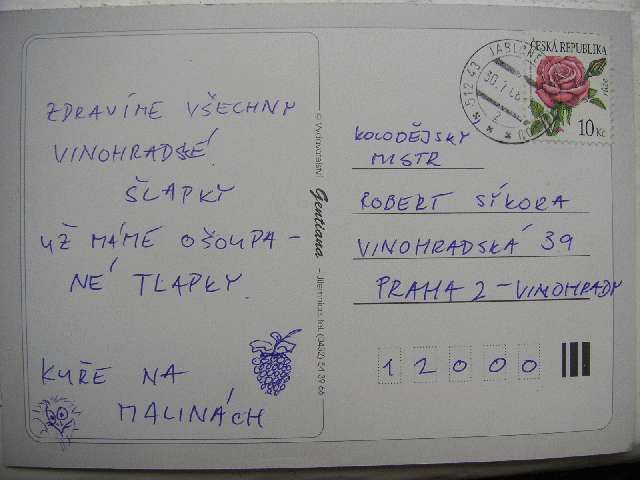 ZDRAVÍME VŠECHNY
VINOHRADSKÉ
ŠLAPKY
UŽ MÁME OŠOUPA-
NÉ TLAPKY.
KUŘE NA
MALINÁCH
© Vydavatelství Gentiana - Jilemnice, tel. (0432) 54 39 66
ČESKÁ REPUBLIKA
růže
10 Kč
512 43 JABLONEC
KOLODĚJSKÝ
MISTR
ROBERT SÝKORA
VINOHRADSKÁ 39
PRAHA 2 - VINOHRADY
1 2 0 0 0